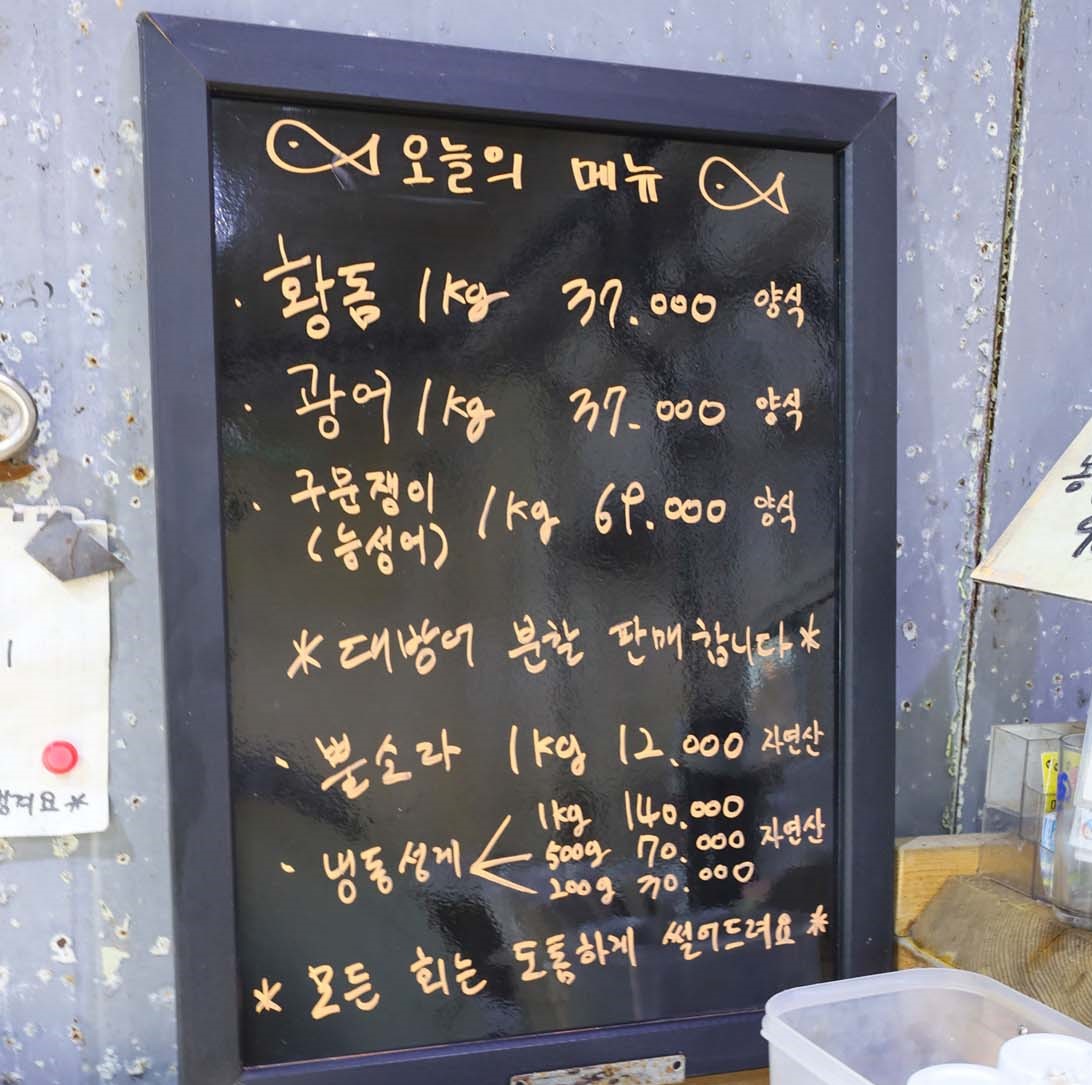 오늘의 메뉴
· 황돔 1kg 37.000 양식
· 광어 1kg 37.000 양식
· 구문쟁이 1kg 69.000 양식
(능성어)
* 대방어 분할 판매합니다 *
· 뿔소라 1kg 12.000 자연산
1kg 140.000
· 냉동성게 500g 70.000 자연산
200g 30.000
* 모든 회는 도톰하게 썰어드려요 *